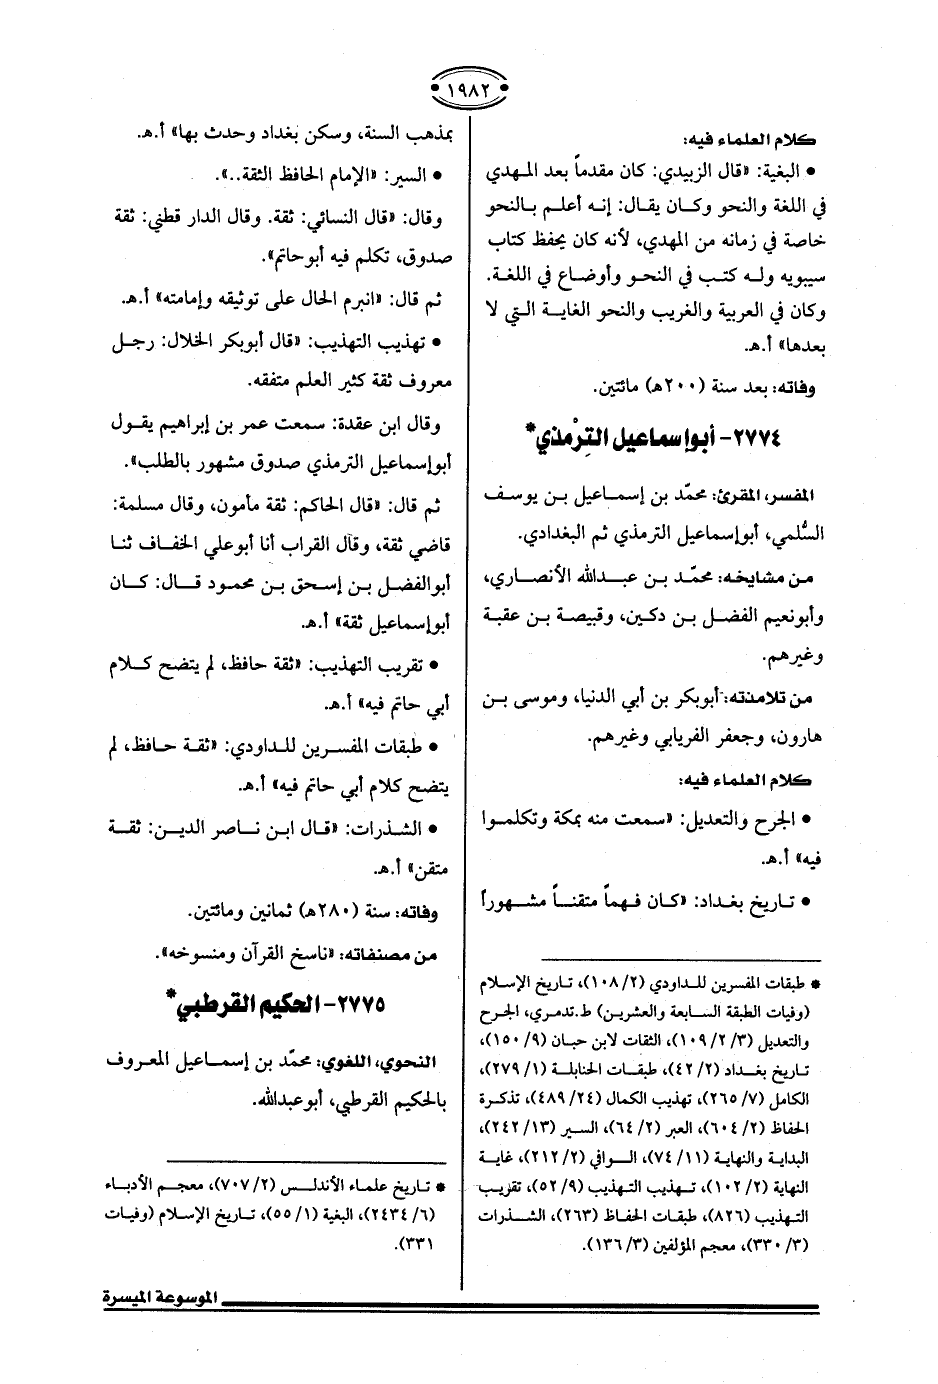 ١٩٨٢
كلام العلماء فيه:
• البغية: «قال الزبيدي: كان مقدماً بعد المهدي
في اللغة والنحو وكان يقال: إنه أعلم بالنحو
خاصة في زمانه من المهدي، لأنه كان يحفظ كتاب
سيبويه وله كتب في النحو وأوضاع في اللغة.
وكان في العربية والغريب والنحو الغاية التي لا
بعدها» أ.هـ.
وفاته: بعد سنة (٢٠٠هـ) مائتين.
٢٧٧٤- أبو إسماعيل الترْمذي*
المفسر، المقرئ: محمّد بن إسماعيل بن يوسف
السُّلمي، أبو إسماعيل الترمذي ثم البغدادي.
من مشايخه: محمّد بن عبدالله الأنصاري،
وأبونعيم الفضل بن دكين، وقبيصة بن عقبة
وغيرهم.
من تلامذته: أبوبكر بن أبي الدنيا، وموسى بن
هارون، وجعفر الفريابي وغيرهم.
كلام العلماء فيه:
• الجرح والتعديل: «سمعت منه بمكة وتكلموا
فيه» أ.هـ.
• تاريخ بغداد: «كان فهماً متقناً مشهوراً
* طبقات المفسرين للداودي (٢/ ١٠٨)، تاريخ الإسلام
(وفيات الطبقة السابعة والعشرين) ط.تدمري، الجرح
والتعديل (٣/ ٢/ ١٠٩)، الثقات لابن حبان (٩/ ١٥٠)،
تاريخ بغداد (٢/ ٤٢)، طبقات الحنابلة (١/ ٢٧٩)،
الكامل (٧/ ٢٦٥)، تهذيب الكمال (٢٤/ ٤٨٩)، تذكرة
الحفاظ (٢/ ٦٠٤)، العبر (٢/ ٦٤)، السير (١٣/ ٢٤٢)،
البداية والنهاية (١١/ ٧٤)، الوافي (٢/ ٢١٢)، غاية
النهاية (٢/ ١٠٢)، تهذيب التهذيب (٩/ ٥٢)، تقريب
التهذيب (٨٢٦)، طبقات الحفاظ (٢٦٣)، الشذرات
(٣/ ٣٣٠)، معجم المؤلفين (٣/ ١٣٦).
بمذهب السنة، وسكن بغداد وحدث بها» أ.هـ.
• السير: «الإمام الحافظ الثقة..».
وقال: «قال النسائي: ثقة. وقال الدار قطني: ثقة
صدوق، تكلم فيه أبوحاتم».
ثم قال: «انبرم الحال على توثيقه وإمامته» أ.هـ.
• تهذيب التهذيب: «قال أبوبكر الخلال: رجل
معروف ثقة كثير العلم متفقه.
وقال ابن عقدة: سمعت عمر بن إبراهيم يقول
أبو إسماعيل الترمذي صدوق مشهور بالطلب».
ثم قال: «قال الحاكم: ثقة مأمون، وقال مسلمة:
قاضي ثقة، وقال القراب أنا أبوعلي الخفاف ثنا
أبوالفضل بن إسحق بن محمود قال: كان
أبو إسماعيل ثقة» أ.هـ.
• تقريب التهذيب: «ثقة حافظ، لم يتضح كلام
أبي حاتم فيه» أ.هـ.
• طبقات المفسرين للداودي: «ثقة حافظ، لم
يتضح كلام أبي حاتم فيه» أ.هـ.
• الشذرات: «قال ابن ناصر الدين: ثقة
متقن» أ.هـ.
وفاته: سنة (٢٨٠هـ) ثمانين ومائتين.
من مصنفاته: «ناسخ القرآن ومنسوخه».
٢٧٧٥- الحكيم القرطبي*
النحوي، اللغوي: محمّد بن إسماعيل المعروف
بالحكيم القرطبي، أبوعبدالله.
* تاريخ علماء الأندلس (٢/ ٧٠٧)، معجم الأدباء
(٦/ ٢٤٣٤)، البغية (١/ ٥٥)، تاريخ الإسلام (وفيات
٣٣١).
الموسوعة الميسرة